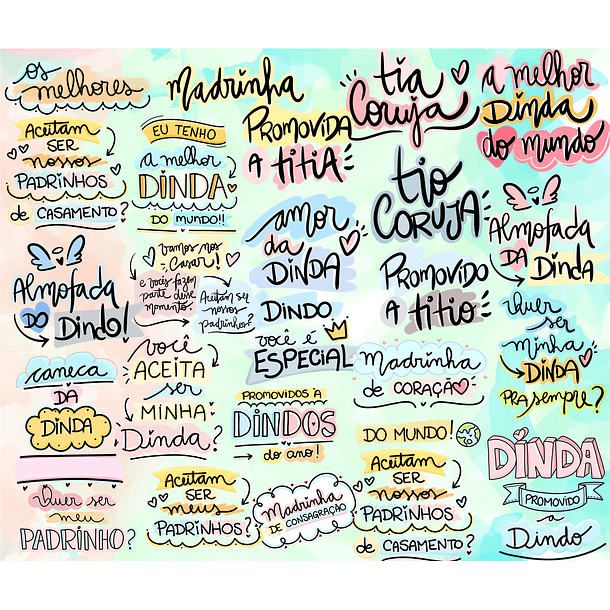 os
melhores
Aceitam
SER
nossos
PADRINHOS
de CASAMENTO?
Almofada
DO Dindo!
caneca
DA
DINDA
Quer ser
meu
PADRINHO?
Madrinha
EU TENHO
a melhor
DINDA
DO MUNDO!!
vamos nos
Casar!
e vocês fazem
parte desse
momento.
Aceitam ser
nossos
padrinhos?
você
ACEITA
ser
MINHA
Dinda?
Aceitam
SER
meus
PADRINHOS?
PROMOVIDA
A TITIA
amor
da
DINDA
DINDO
você é
ESPECIAL
PROMOVIDOS À
DINDOS
do ano!
Madrinha
DE CONSAGRAÇÃO
tia
Coruja
tio
CORUJA
PROMOVIDO
A titio
Madrinha
de CORAÇÃO
DO MUNDO!
Aceitam
SER
nossos
PADRINHOS
de CASAMENTO?
a melhor
DINDA
do mundo
Almofada
DA Dinda
Quer
ser
minha
DINDA
PRA sempre?
DINDA
PROMOVIDO
a
Dindo